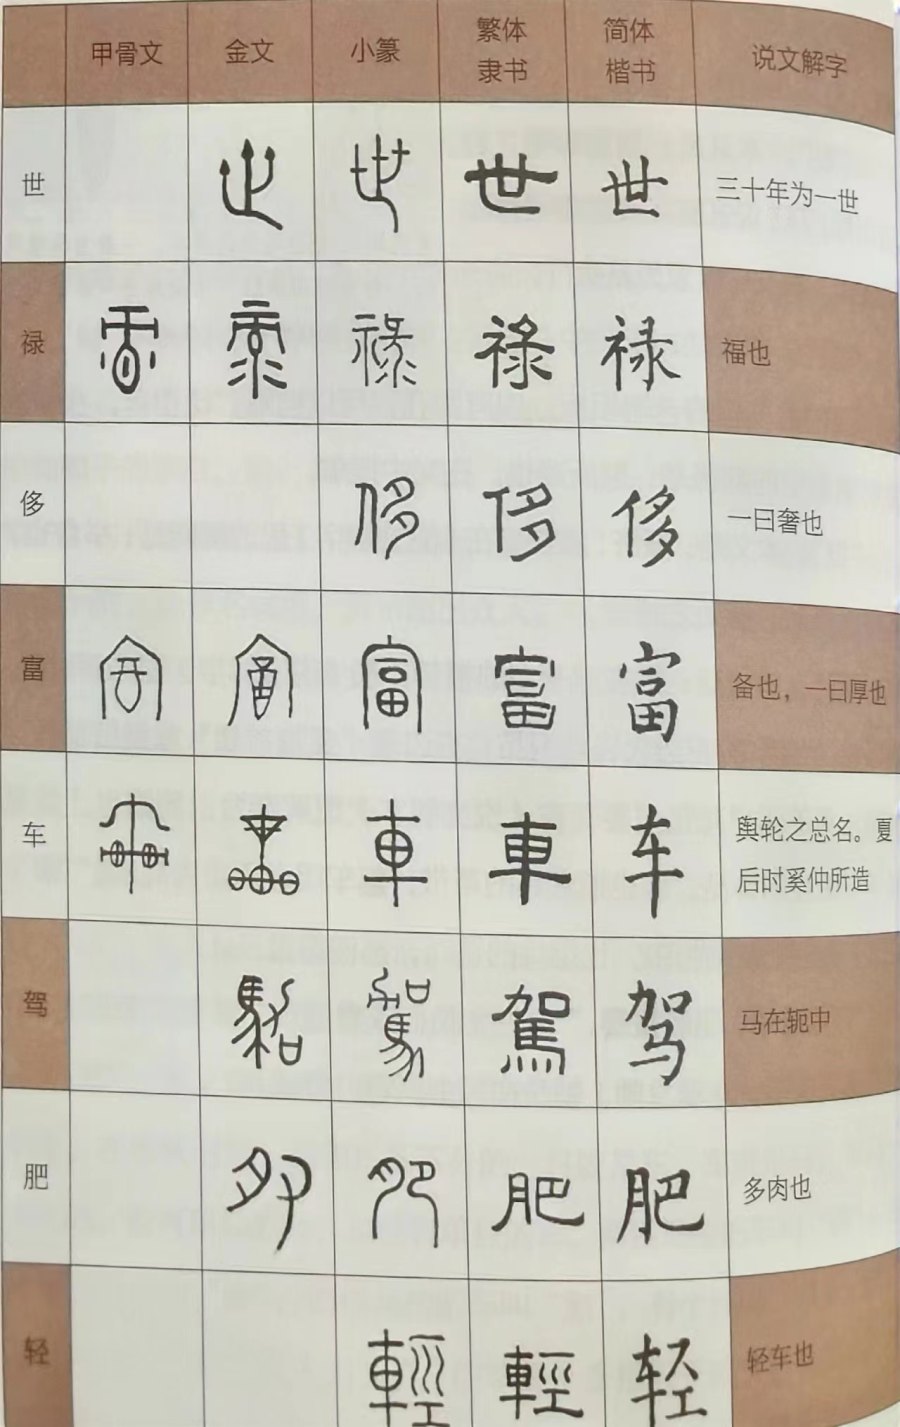 甲骨文 金文 小篆 繁体 简体 说文解字
隶书 楷书
世 世 世 三十年为一世
禄 祿 禄 福也
侈 侈 侈 一曰奢也
富 富 富 备也，一曰厚也
车 車 车 舆轮之总名。夏
后时奚仲所造
驾 駕 驾 马在轭中
肥 肥 肥 多肉也
轻 輕 轻 轻车也